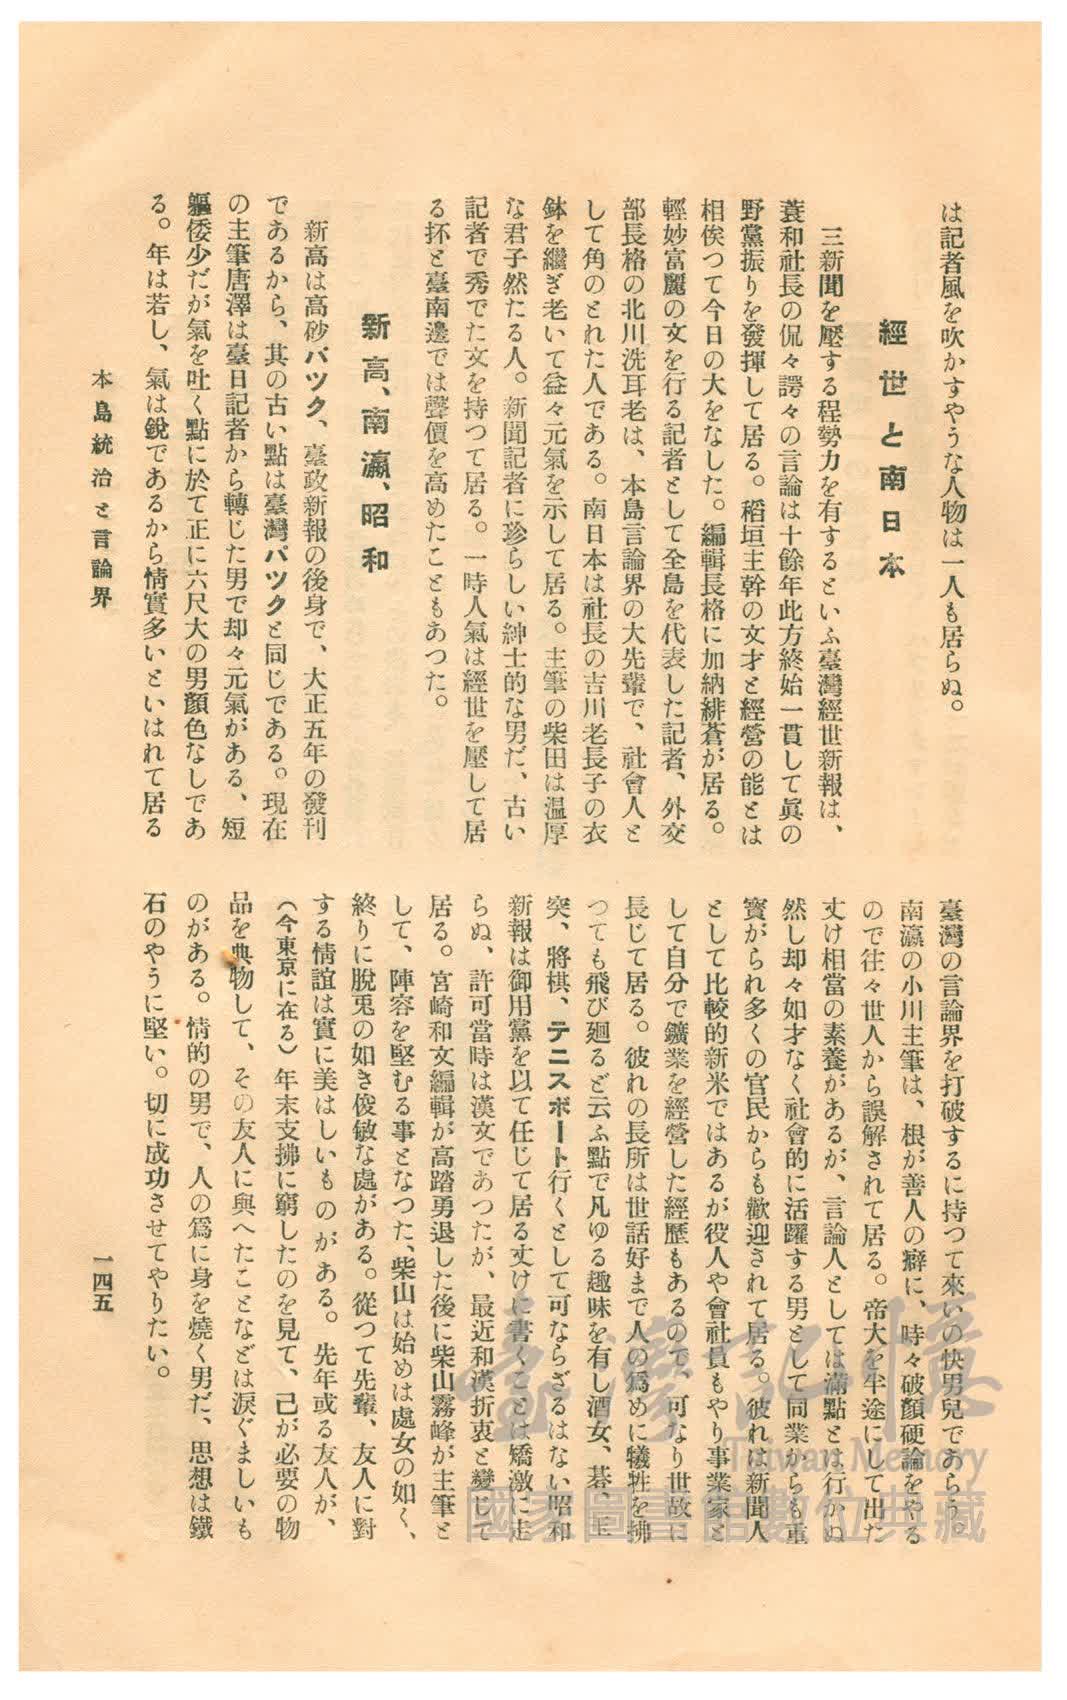 は記者風を吹かすやうな人物は一人も居らぬ。
經世と南日本
三新聞を壓する程勢力を有するといふ臺灣經世新報は、
蓑和社長の侃々諤々の言論は十餘年此方終始一貫して眞の
野黨振りを發揮して居る。稻垣主幹の文才と經營の能とは
相俟つて今日の大をなした。編輯長格に加納緋蒼が居る。
輕妙富麗の文を行る記者として全島を代表した記者、外交
部長格の北川洗耳老は、本島言論界の大先輩で、社會人と
して角のとれた人である。南日本は社長の吉川老長子の衣
鉢を繼ぎ老いて益々元氣を示して居る。主筆の柴田は温厚
な君子然たる人。新聞記者に珍らしい紳士的な男だ、古い
記者で秀でた文を持つて居る。一時人氣は經世を壓して居
る抔と臺南邊では聲價を高めたこともあつた。
新高、南瀛、昭和
新高は高砂パツク、臺政新報の後身で、大正五年の發刊
であるから、其の古い點は臺灣パツクと同じである。現在
の主筆唐澤は臺日記者から轉じた男で却々元氣がある、短
軀倭少だが氣を吐く點に於て正に六尺大の男顏色なしであ
る。年は若し、氣は銳であるから情實多いといはれて居る
臺灣の言論界を打破するに持つて來いの快男兒であらう。
南瀛の小川主筆は、根が善人の癖に、時々破顏硬論をやる
ので往々世人から誤解されて居る。帝大を半途にして出た
丈け相當の素養があるが、言論人としては滿點とは行かぬ
然し却々如才なく社會的に活躍する男として同業からも重
寳がられ多くの官民からも歡迎されて居る。彼れは新聞人
として比較的新米ではあるが役人や會社員もやり事業家と
して自分で鑛業を經營した經歷もあるので、可なり世故に
長じて居る。彼れの長所は世話好まで人の爲めに犧牲を拂
つても飛び廻るど云ふ點で凡ゆる趣味を有し酒女、碁、玉
突、將棋、テニスボート行くとして可ならざるはない昭和
新報は御用黨を以て任じて居る丈けに書くことは矯激に走
らぬ、許可當時は漢文であつたが、最近和漢折衷と變じて
居る。宮崎和文編輯が高踏勇退した後に柴山霧峰が主筆と
して、陣容を堅むる事となつた、柴山は始めは處女の如く、
終りに脫兎の如き俊敏な處がある。從つて先輩、友人に對
する情誼は實に美はしいものがある。先年或る友人が、
（今東京に在る）年末支拂に窮したのを見て、己が必要の物
品を典物して、その友人に與へたことなどは淚ぐましいも
のがある。情的の男で、人の爲に身を燒く男だ、思想は鐵
石のやうに堅い。切に成功させてやりたい。
本島統治と言論界
一四五
臺灣記憶
Taiwan Memory
國家圖書館數位典藏